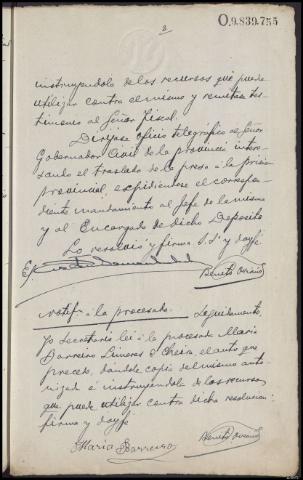 2
O.9.839.755
instruyendola de los recursos que puede
utilizar contra el mismo y remitase tes
timonio al Señor Fiscal.
Dirijase oficio telegráfico al Señor
Gobernador Civil de la provincia intere-
sando el traslado de la presa a la prisión
provincial, expidiendose el correspon-
diente mandamiento al Jefe de la misma
y al Encargado de dicho Deposito
Lo resolvio y firma S.Sª y doy fé
Notifn a la procesada. Seguidamente,
Yo Secretario lei á la procesada Maria
Barreiro Linares el auto que
precede, dandole copia del mismo auto-
rizada é instruyendola de los recursos
que puede utilizar contra dicha resolucion:
firma y doy fé
Maria Barreiro